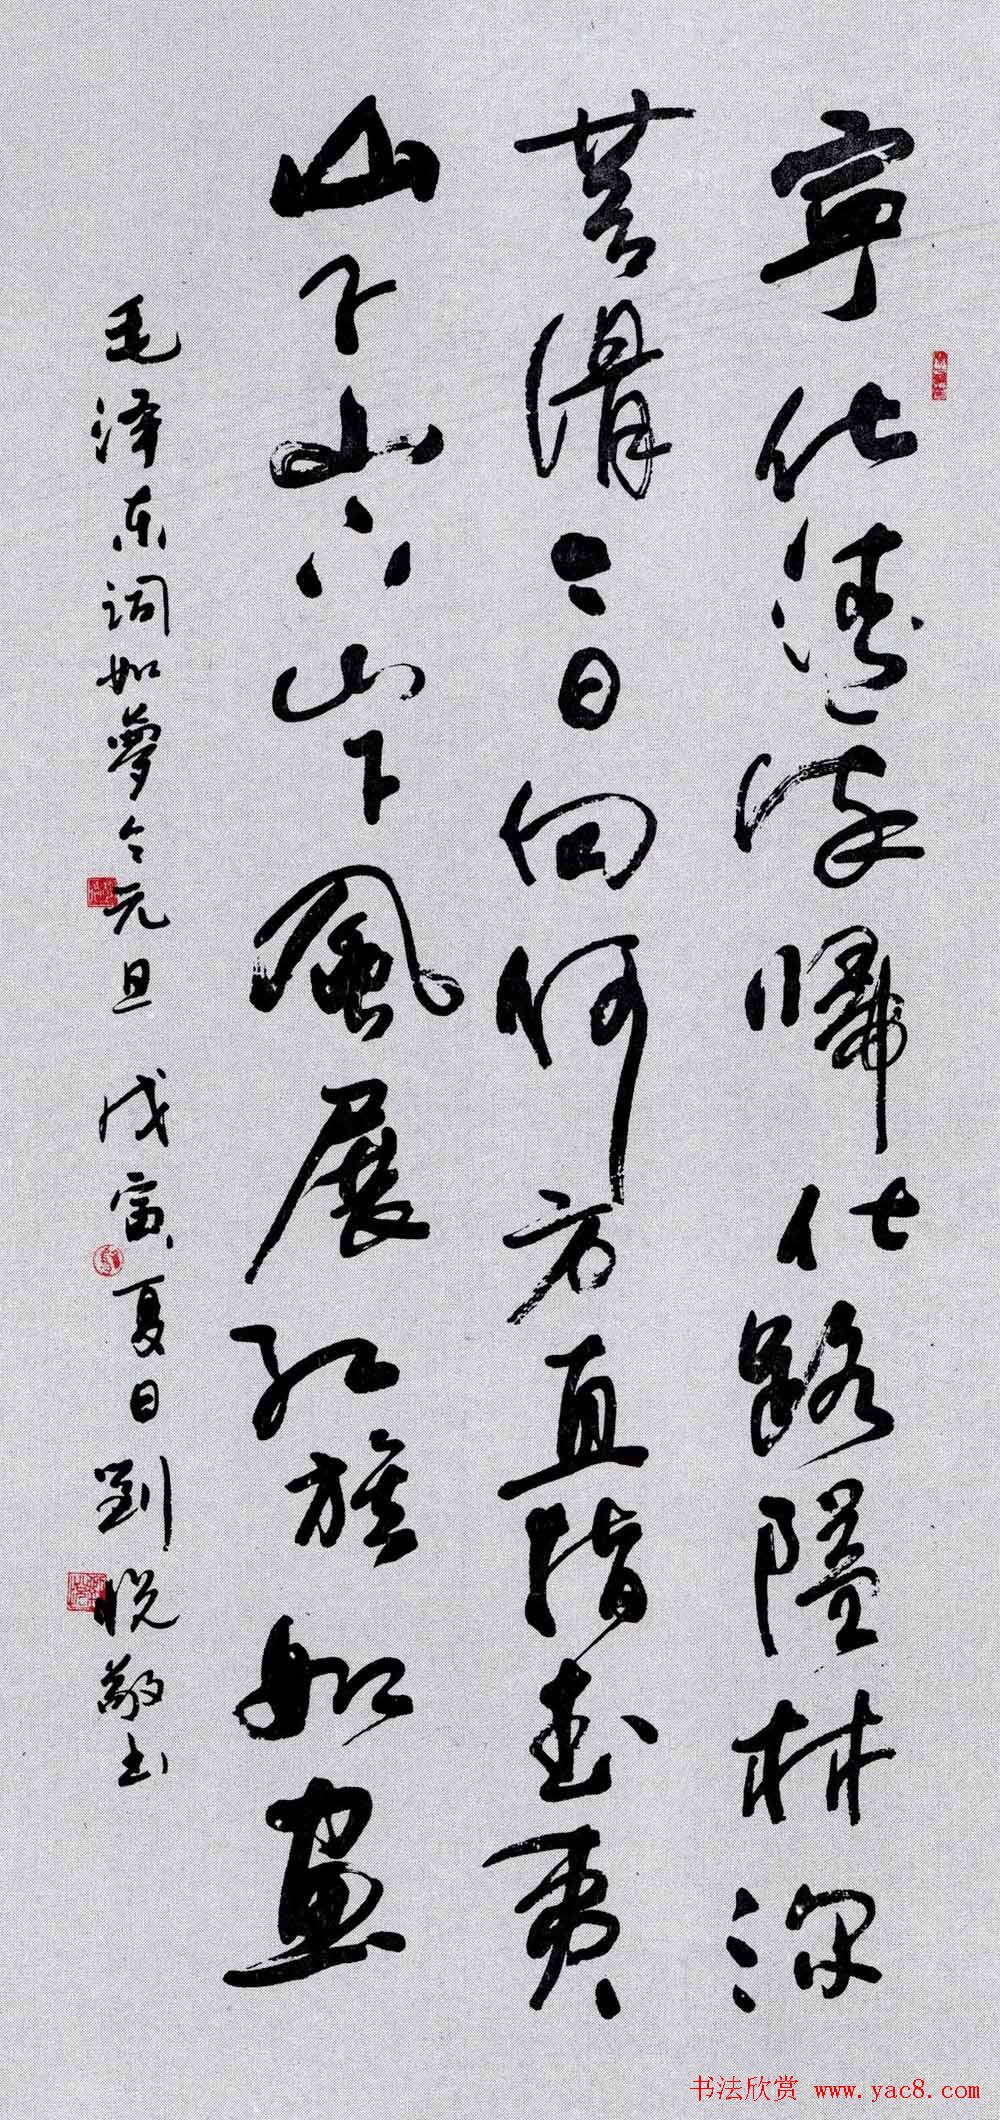 寧化清流歸化路隘林深
苔滑今日向何方直指武夷
山下山下山下風展红旗如畫
毛泽东词如夢令元旦 戊寅夏日劉悦敬书
书法欣赏 www.yac8.com